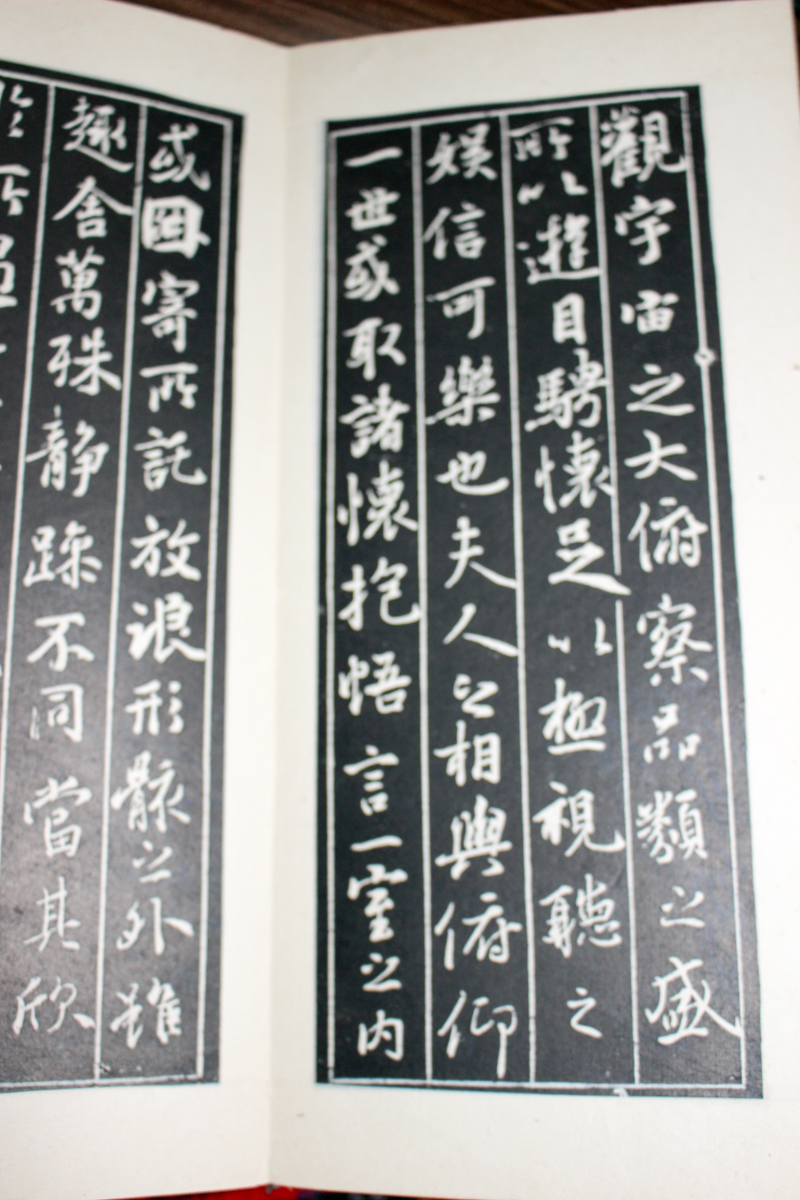 觀宇宙之大俯察品類之盛
所以遊目騁懷足以極視聽之
娛信可樂也夫人之相與俯仰
一世或取諸懷抱悟言一室之內
或因寄所託放浪形骸之外雖
趣舍萬殊靜躁不同當其欣
於所遇